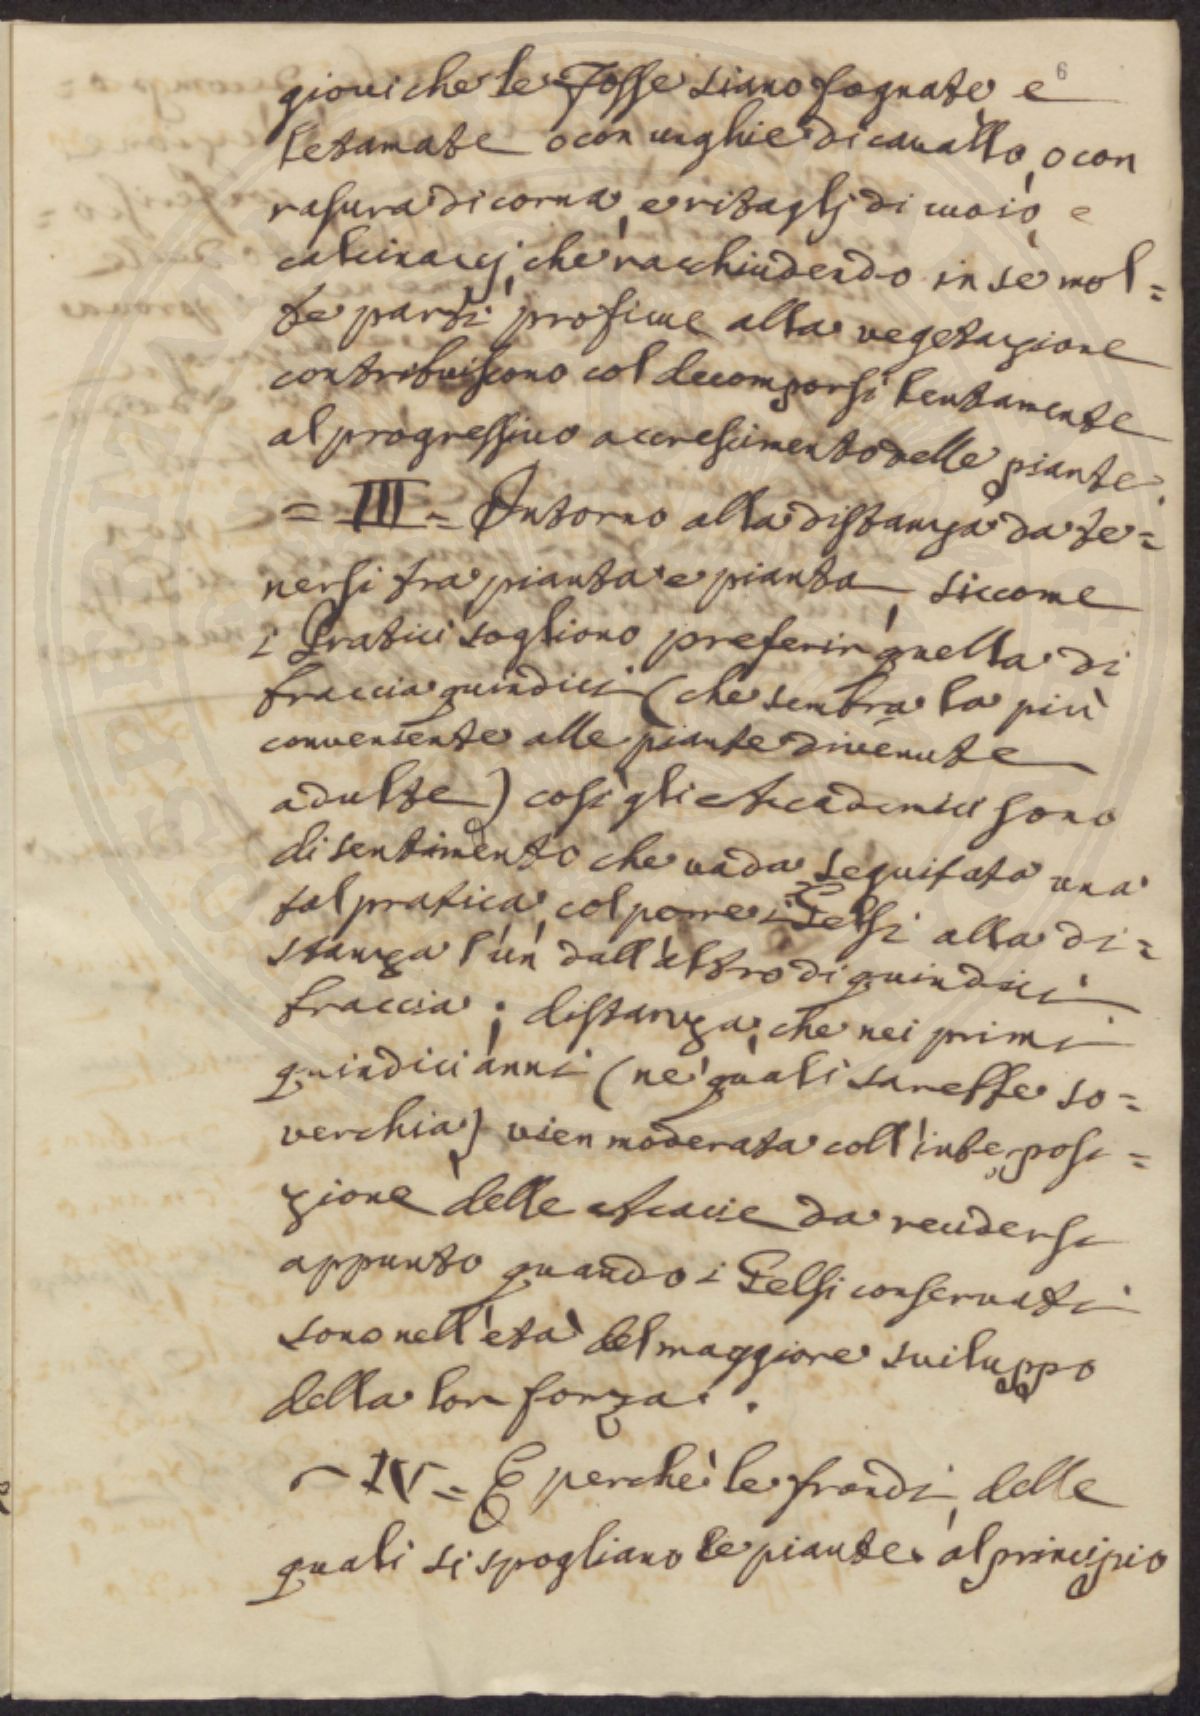 giovi che le Fosse siano fognate e
letamate o con unghie di cavallo, o con
rasura di corna, e ritaglj di cuoio, e
calcinaccj, che racchiudendo in se mol=
te parti proficue alla vegetazione
contribuiscono col decomporsi lentamente
al progressivo accrescimento delle piante.
= III = Intorno alla distanza da te=
nersi fra pianta e pianta, siccome
i Pratici sogliono preferir quella di
braccia quindici (che sembra la più
conveniente alle piante divenute
adulte) così gli Accademici sono
di sentimento che vada seguitata una
tal pratica, col porre i Gelsi alla di=
stanza l'un dall'altro di quindici
braccia; distanza, che nei primi
quindici anni (ne' quali sarebbe so=
verchia) vien moderata coll'interposi=
zione delle Acacie da recidersi
appunto quando i Gelsi conservati
sono nell'età del maggiore sviluppo
della lor forza.
= IV = E perchè le frondi, delle
quali si spogliano le piante al principio
6